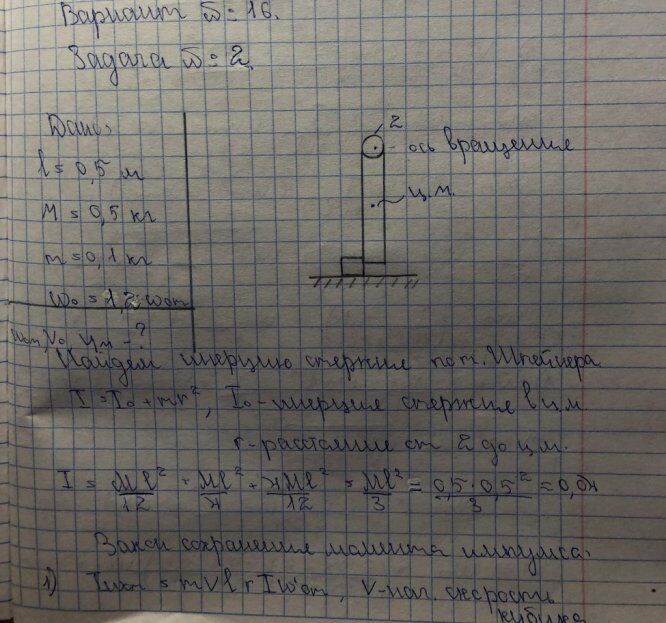 Вариант №=16.
Задача №=2.
Дано:
l=0,5 м
M=0,5 кг
m=0,1 кг
ω₀=1,2 ωоп
z
ось вращения
ц.м.
V₀, -?
Найдем инерцию стержня по т. Штейнера
I=I₀+mr², I₀-инерция стержня в ц.м.
r-расстояние от z до ц.м.
I = Ml²/12 + Ml²/4 = Ml²/3 = 0,5·0,5²/3 = 0,0
Закон сохранения момента импульса:
1) = mVl + I, V-нач. скорость
кубика